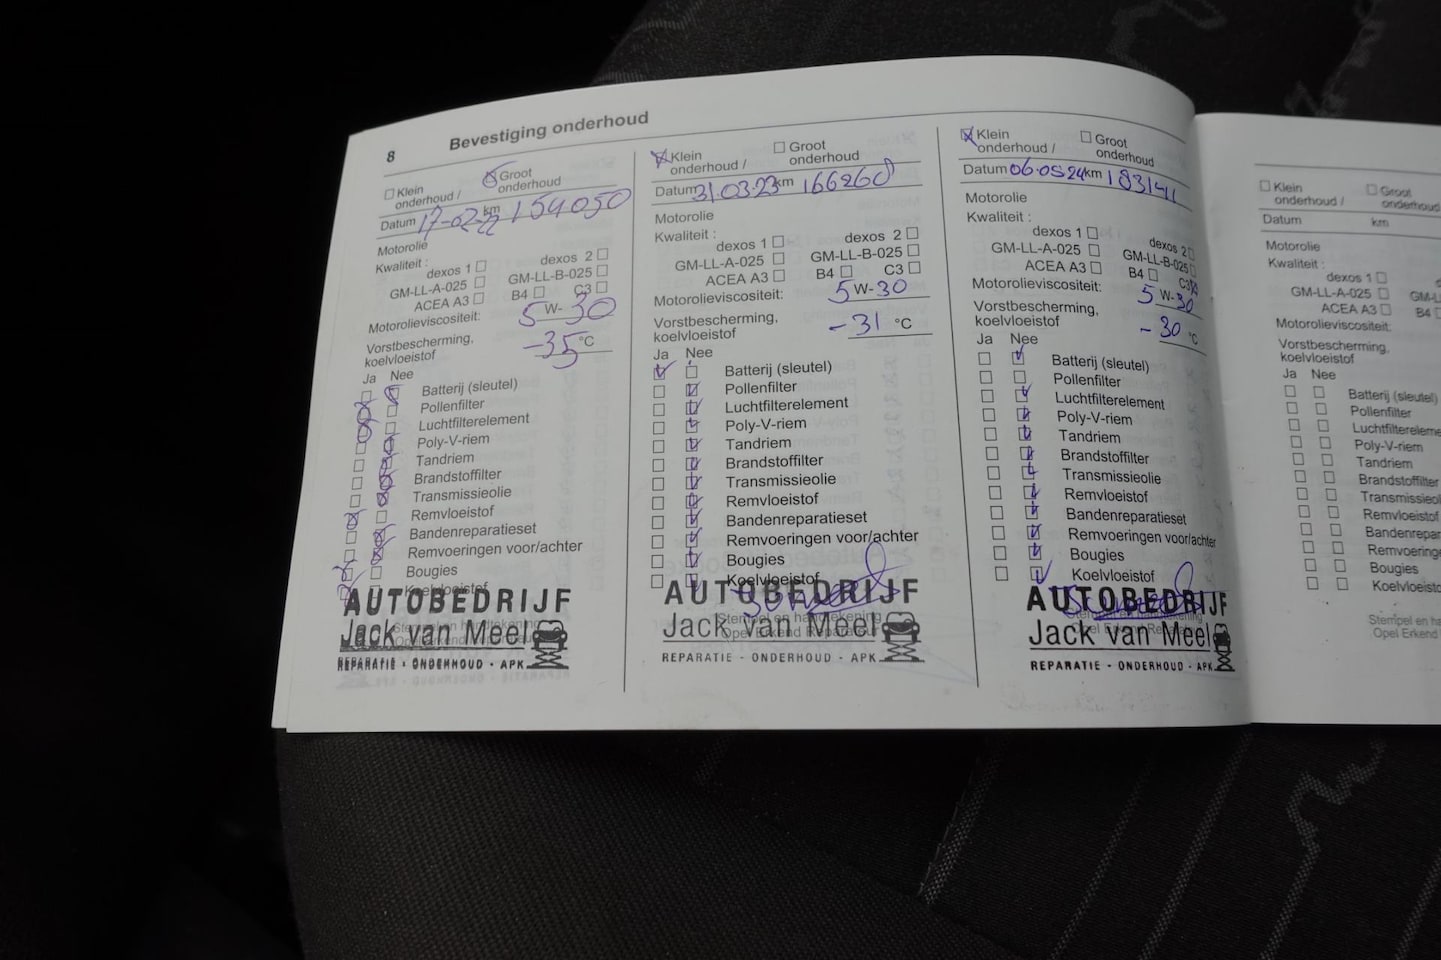 8
Bevestiging onderhoud
Klein onderhoud /
Groot onderhoud
Datum 17-02-22 km 154050
Motorolie
Kwaliteit :
dexos 1
dexos 2
GM-LL-A-025
GM-LL-B-025
ACEA A3
B4
C3
Motorolieviscositeit: 5 W- 30
Vorstbescherming,
koelvloeistof
-35 °C
Ja Nee
Batterij (sleutel)
Pollenfilter
Luchtfilterelement
Poly-V-riem
Tandriem
Brandstoffilter
Transmissieolie
Remvloeistof
Bandenreparatieset
Remvoeringen voor/achter
Bougies
Koelvloeistof
AUTOBEDRIJF
Jack van Meel
REPARATIE - ONDERHOUD - APK
Klein onderhoud /
Groot onderhoud
Datum 31-03-23 km 166260
Motorolie
Kwaliteit :
dexos 1
dexos 2
GM-LL-A-025
GM-LL-B-025
ACEA A3
B4
C3
Motorolieviscositeit: 5 W-30
Vorstbescherming,
koelvloeistof
-31 °C
Ja Nee
Batterij (sleutel)
Pollenfilter
Luchtfilterelement
Poly-V-riem
Tandriem
Brandstoffilter
Transmissieolie
Remvloeistof
Bandenreparatieset
Remvoeringen voor/achter
Bougies
Koelvloeistof
Stempel en handtekening
Opel Erkend Reparateur
AUTOBEDRIJF
Jack van Meel
REPARATIE - ONDERHOUD - APK
Klein onderhoud /
Groot onderhoud
Datum 06-05-24 km 183141
Motorolie
Kwaliteit :
dexos 1
dexos 2
GM-LL-A-025
GM-LL-B-025
ACEA A3
B4
C3
Motorolieviscositeit: 5 W-30
Vorstbescherming,
koelvloeistof
-30 °C
Ja Nee
Batterij (sleutel)
Pollenfilter
Luchtfilterelement
Poly-V-riem
Tandriem
Brandstoffilter
Transmissieolie
Remvloeistof
Bandenreparatieset
Remvoeringen voor/achter
Bougies
Koelvloeistof
AUTOBEDRIJF
Jack van Meel
REPARATIE - ONDERHOUD - APK
Klein onderhoud /
Groot onderhoud
Datum km
Motorolie
Kwaliteit :
dexos 1
GM-LL-A-025
GM-L
ACEA A3
B4
Motorolieviscositeit:
Vorstbescherming,
koelvloeistof
Ja Nee
Batterij (sleutel)
Pollenfilter
Luchtfiltereleme
Poly-V-riem
Tandriem
Brandstoffilter
Transmissieol
Remvloeistof
Bandenrepar
Remvoeringe
Bougies
Koelvloeisto
Stempel en ha
Opel Erkend